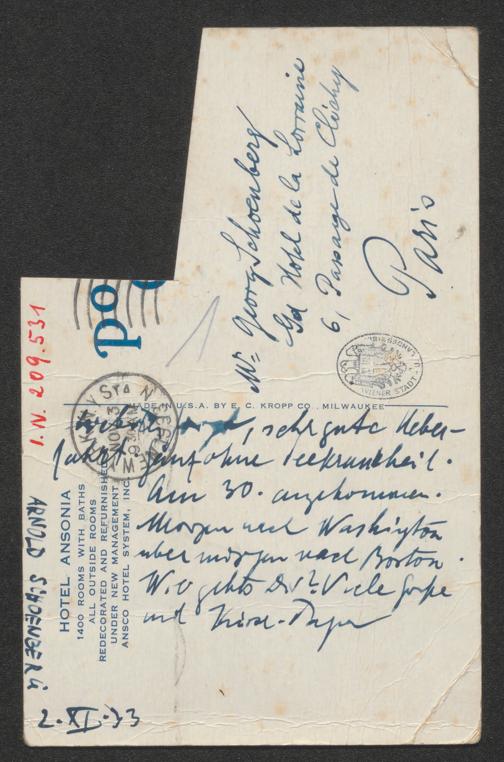 Mr. Georg Schoenberg
Gd Hotel de la Lorraine
6, Passage de Clichy
Paris
po
I.N. 209.531
MADE IN U.S.A. BY E. C. KROPP CO. MILWAUKEE
WIENER STADT
NOV
9 30
N.Y.
STA
HOTEL ANSONIA
1400 ROOMS WITH BATHS
ALL OUTSIDE ROOMS
REDECORATED AND REFURNISHED
UNDER NEW MANAGEMENT
ANSCO HOTEL SYSTEM, INC.
, sehr gute Ueber-
fahrt ganz ohne Seekrankheit.
Am 30. angekommen.
Morgen nach Washington
übermorgen nach Boston.
Wie gehts Dir? Viele Grüße
und
ARNOLD SCHOENBERG
2.XI.33